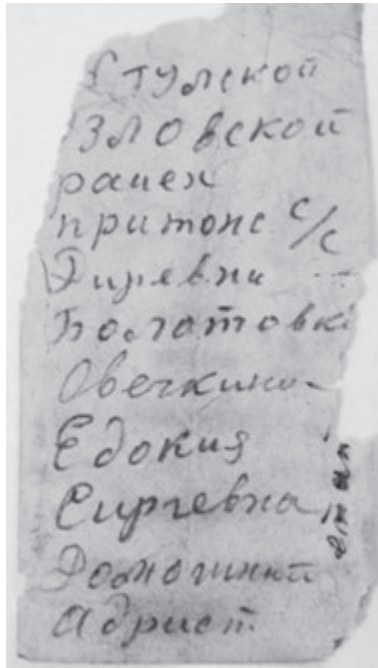 Стулской
Узловской
раиен
притонс с/с
Диревни
Болотовка
Овечкина
Едокия
Сиргевна
Домошний
Адрист